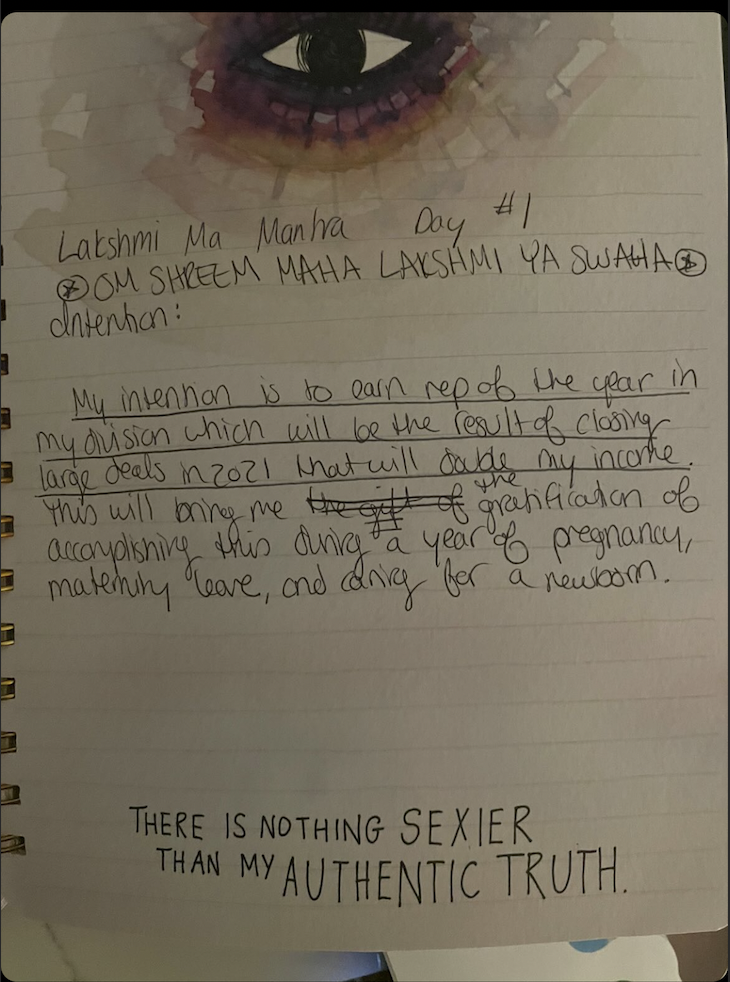 Lakshmi Ma Mantra Day #1
OM SHREEM MAHA LAKSHMI YA SWAHA
Intention:
My intention is to earn rep of the year in
my division which will be the result of closing
large deals in 2021 that will double my income.
This will bring me the gift of the gratification of
accomplishing this during a year of pregnancy,
maternity leave, and caring for a newborn.
THERE IS NOTHING SEXIER
THAN MY AUTHENTIC TRUTH.